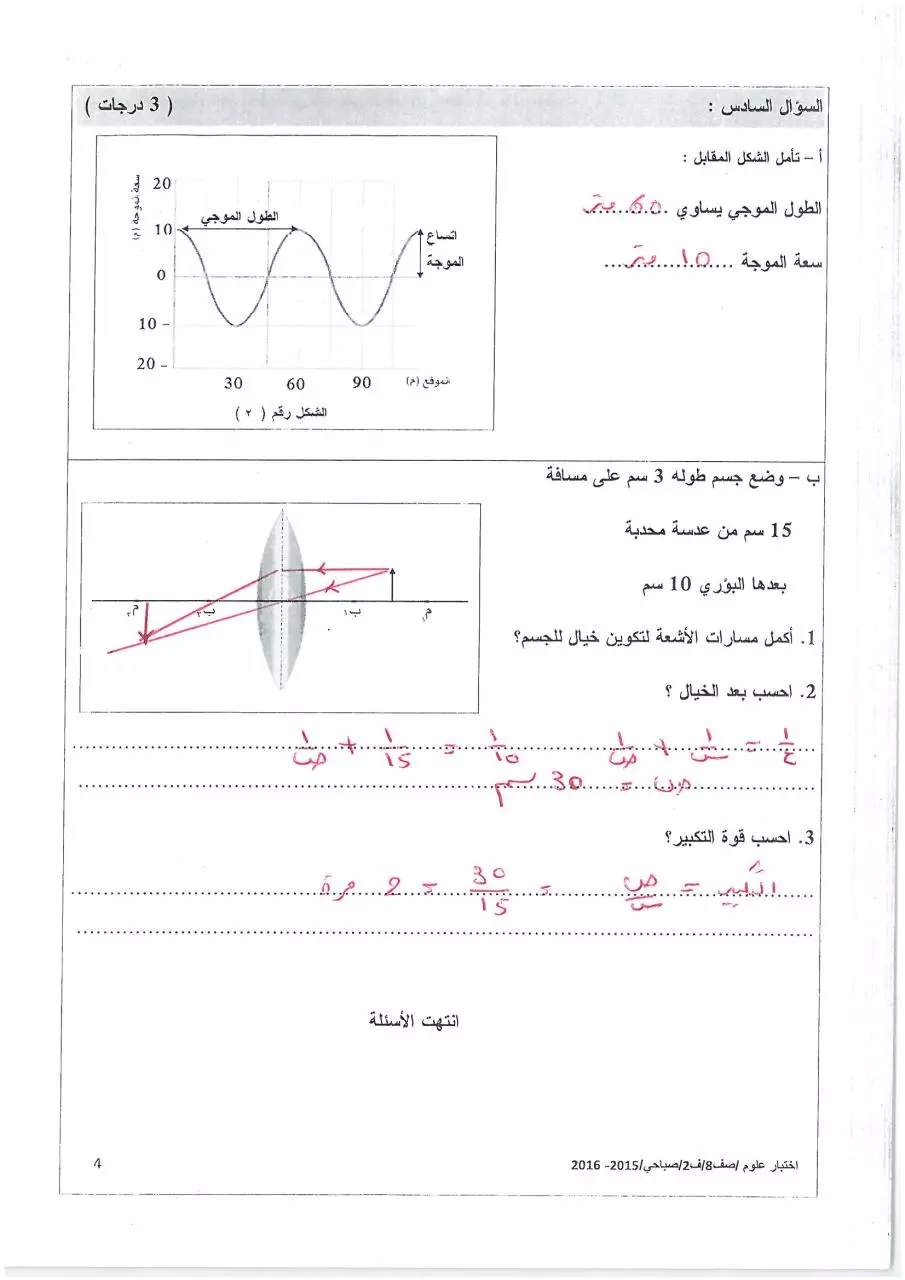 السؤال السادس : ( 3 درجات )
أ – تأمل الشكل المقابل :
الطول الموجي يساوي ..60 متر..
سعة الموجة ..10 متر..
سعة الموجة (م)
20
10
0
10 –
20 –
الطول الموجي
اتساع
الموجة
30 60 90 الموقع (م)
الشكل رقم ( ٢ )
ب – وضع جسم طوله 3 سم على مسافة
15 سم من عدسة محدبة
بعدها البؤري 10 سم
م١ ب١ ب٢ م٢
1. أكمل مسارات الأشعة لتكوين خيال للجسم؟
2. احسب بعد الخيال ؟
١/ع = ١/س + ١/ص ١/10 = ١/15 + ١/ص
ص = 30 سم
3. احسب قوة التكبير؟
التكبير = ص/س = 30/15 = 2 مرة
انتهت الأسئلة
اختبار علوم /صف8/ف2/صباحي/2015- 2016
4